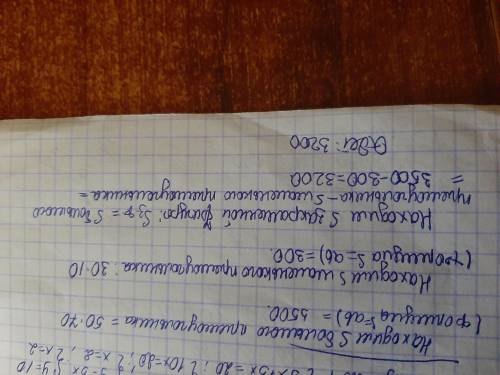 Находим S большого прямоугольника = 50·70
(формула S=ab) = 3500.
Находим S маленького прямоугольника: 30·10
(формула S=ab) = 300.
Находим S закрашенной фигуры: Sз.ф = S большого
прямоугольника - S маленького прямоугольника =
= 3500-300=3200
Ответ: 3200